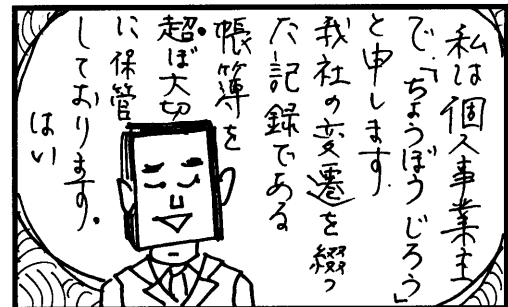 私は個人事業主
で、「ちょうぼうじろう」
と申します。
我社の変遷を綴っ
た記録である
帳簿を
超ぼ大切
に保管
しております。
はい